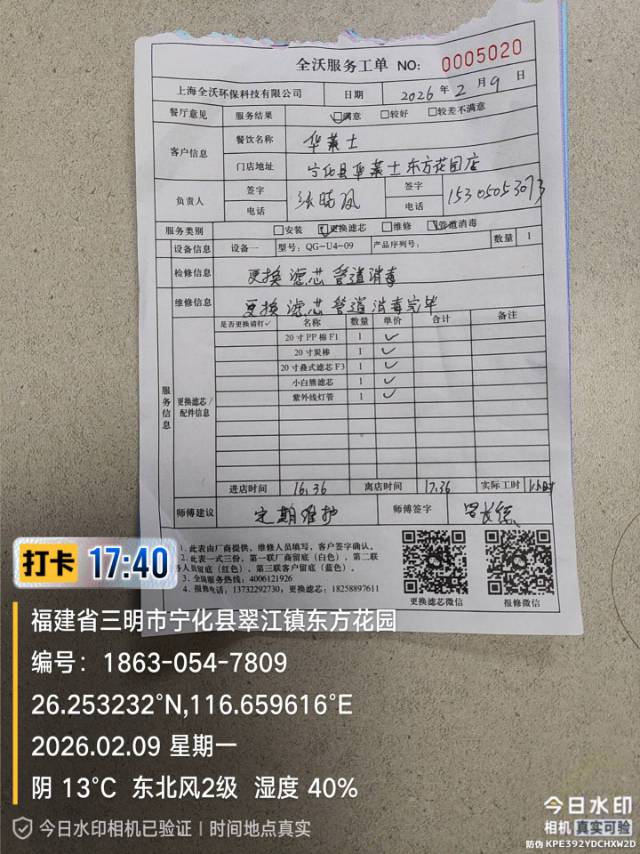 全沃服务工单 NO: 0005020
上海全沃环保科技有限公司 日期 2026 年 2 月 9 日
餐厅意见 服务结果 ☑满意 □较好 □较差不满意
客户信息 餐饮名称 华莱士
门店地址 宁化县华莱士东方花园店
负责人 签字 签字
电话 电话 15305053073
服务类别 □安装 ☑更换滤芯 □维修 ☑管道消毒
设备信息 设备一 型号: QG-U4-09 产品序列号: 数量 1
检修信息 更换滤芯 管道消毒
维修信息 更换滤芯 管道消毒完毕
服务信息 更换滤芯/配件信息
是否更换请打✓ 名称 数量 单价 合计 备注
20寸PP棉F1 1 ✓
20寸炭棒 1 ✓
20寸叠式滤芯F3 1 ✓
小白熊滤芯 1 ✓
紫外线灯管 1 ✓
进店时间 16.36 离店时间 17.36 实际工时 1小时
师傅建议 定期维护 师傅签字
1. 此表由厂商提供, 维修人员填写, 客户签字确认。
2. 此表一式三份, 第一联厂商留底(白色), 第二联
人员留底(红色), 第三联客户留底(蓝色)。
3. 全国服务热线: 4006121926
4. 报修电话: 13732292730, 更换滤芯: 18258897611
更换滤芯微信 报修微信
打卡 17:40
福建省三明市宁化县翠江镇东方花园
编号: 1863-054-7809
26.253232°N,116.659616°E
2026.02.09 星期一
阴 13°C 东北风2级 湿度 40%
今日水印相机已验证 | 时间地点真实
今日水印
相机 真实可验
防伪 KPE392YDCHXW2D